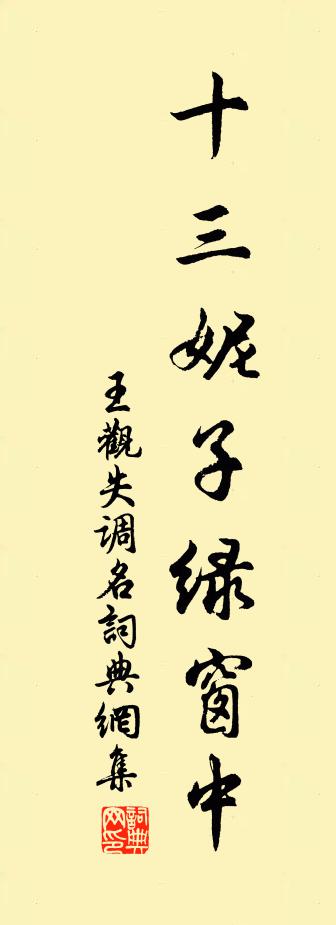 十三妮子綠窗中
王觀失调名詞典網集
詞典网印